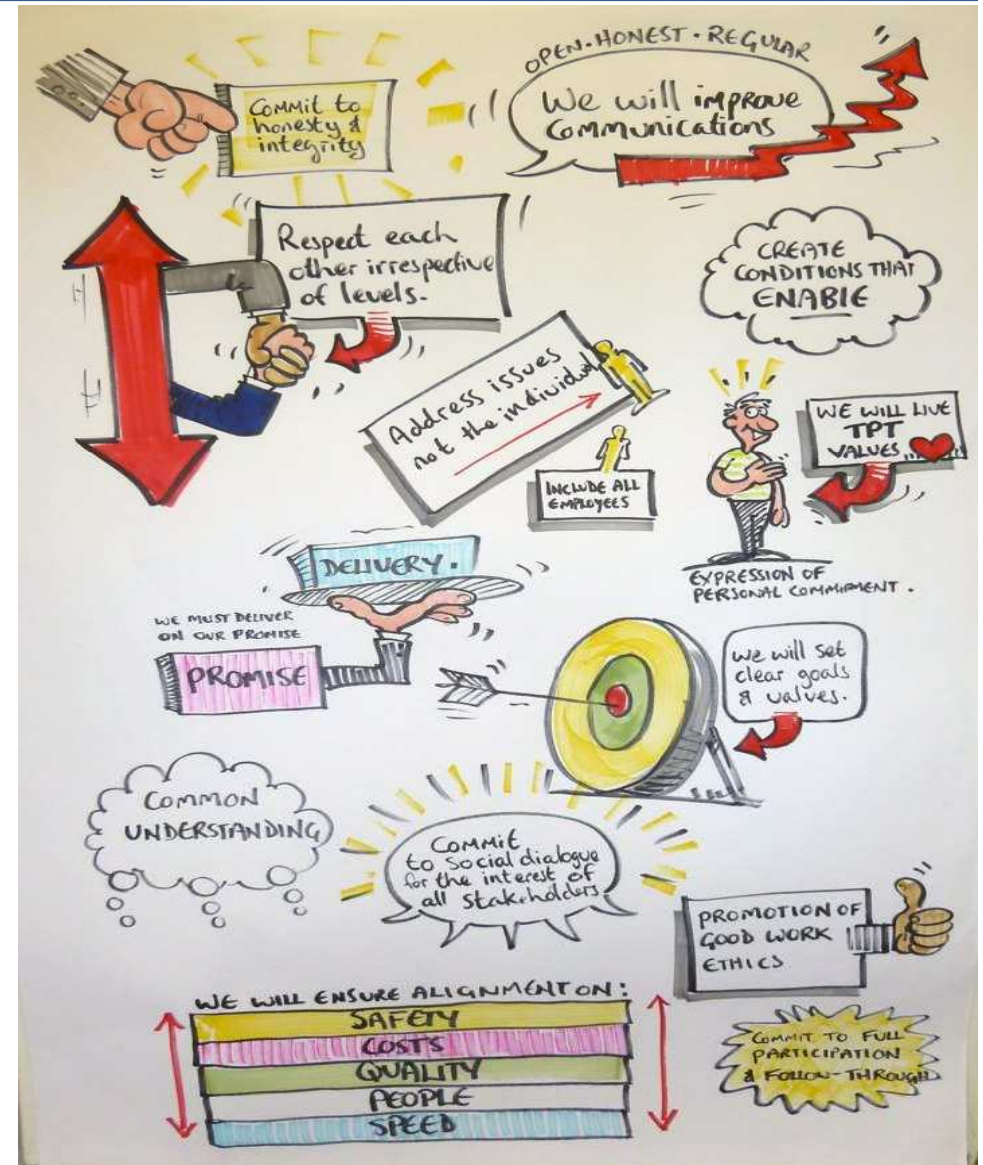 Commit to
honesty &
integrity
OPEN·HONEST·REGULAR
We will improve
Communications
Respect each
other irrespective
of levels.
CREATE
CONDITIONS THAT
ENABLE
Address issues
not the individual
INCLUDE ALL
EMPLOYEES
WE WILL LIVE
TPT
VALUES...
EXPRESSION OF
PERSONAL COMMITMENT.
DELIVERY.
WE MUST DELIVER
ON OUR PROMISE
PROMISE
We will set
clear goals
& values.
COMMON
UNDERSTANDING
Commit
to social dialogue
for the interest of
all stakeholders
PROMOTION OF
GOOD WORK
ETHICS
WE WILL ENSURE ALIGNMENT ON:
SAFETY
COSTS
QUALITY
PEOPLE
SPEED
COMMIT TO FULL
PARTICIPATION
& FOLLOW-THROUGH